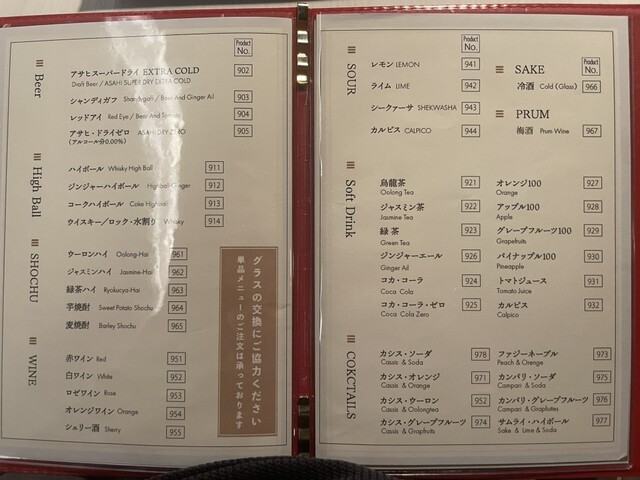 Beer
Product No.
アサヒスーパードライ EXTRA COLD 902
Draft Beer / ASAHI SUPER DRY EXTRA COLD
シャンディガフ Shandygaff / Beer And Ginger Ail 903
レッドアイ Red Eye / Beer And 904
アサヒ・ドライゼロ ASAHI DRY ZERO 905
(アルコール分0.00%)
High Ball
ハイボール Whisky High Ball 911
ジンジャーハイボール Highball Ginger 912
コークハイボール Coke Highball 913
ウイスキー/ロック・水割り Whisky 914
SHOCHU
ウーロンハイ Oolong-Hai 961
ジャスミンハイ Jasmine-Hai 962
緑茶ハイ Ryokucya-Hai 963
芋焼酎 Sweet Potato Shochu 964
麦焼酎 Barley Shochu 965
WINE
赤ワイン Red 951
白ワイン White 952
ロゼワイン Rose 953
オレンジワイン Orange 954
シェリー酒 Sherry 955
グラスの交換にご協力ください
単品メニューのご注文は承っております
SOUR
Product No.
レモン LEMON 941
ライム LIME 942
シークァーサ SHEKWASHA 943
カルピス CALPICO 944
SAKE
Product No.
冷酒 Cold (Glass) 966
PRUM
梅酒 Prum Wine 967
Soft Drink
烏龍茶 921
Oolong Tea
ジャスミン茶 922
Jasmine Tea
緑 茶 923
Green Tea
ジンジャーエール 926
Ginger Ail
コカ・コーラ 924
Coca Cola
コカ・コーラ・ゼロ 925
Coca Cola Zero
オレンジ100 927
Orange
アップル100 928
Apple
グレープフルーツ100 929
Grapefruits
パイナップル100 930
Pineapple
トマトジュース 931
Tomato Juice
カルピス 932
Calpico
COKCTAILS
カシス・ソーダ 978
Cassis & Soda
カシス・オレンジ 971
Cassis & Orange
カシス・ウーロン 952
Cassis & Oolongtea
カシス・グレープフルーツ 974
Cassis & Grapfruits
ファジーネーブル 973
Peach & Orenge
カンパリ・ソーダ 975
Campari & Soda
カンパリ・グレープフルーツ 976
Campari & Grapfuites
サムライ・ハイボール 977
Sake & Lime & Soda